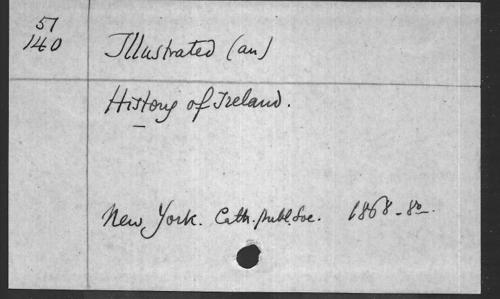 51
140
Illustrated (an)
History of Ireland.
New York. Cath. publ. Soc. 1868_8o_.